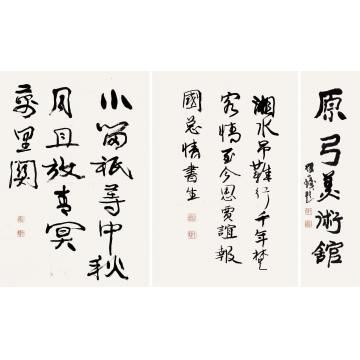 原弓美術館
湘水吊難行千年楚
客情至今思賈誼報
國总情書生
小留祇等中秋
月且放青冥
萬里